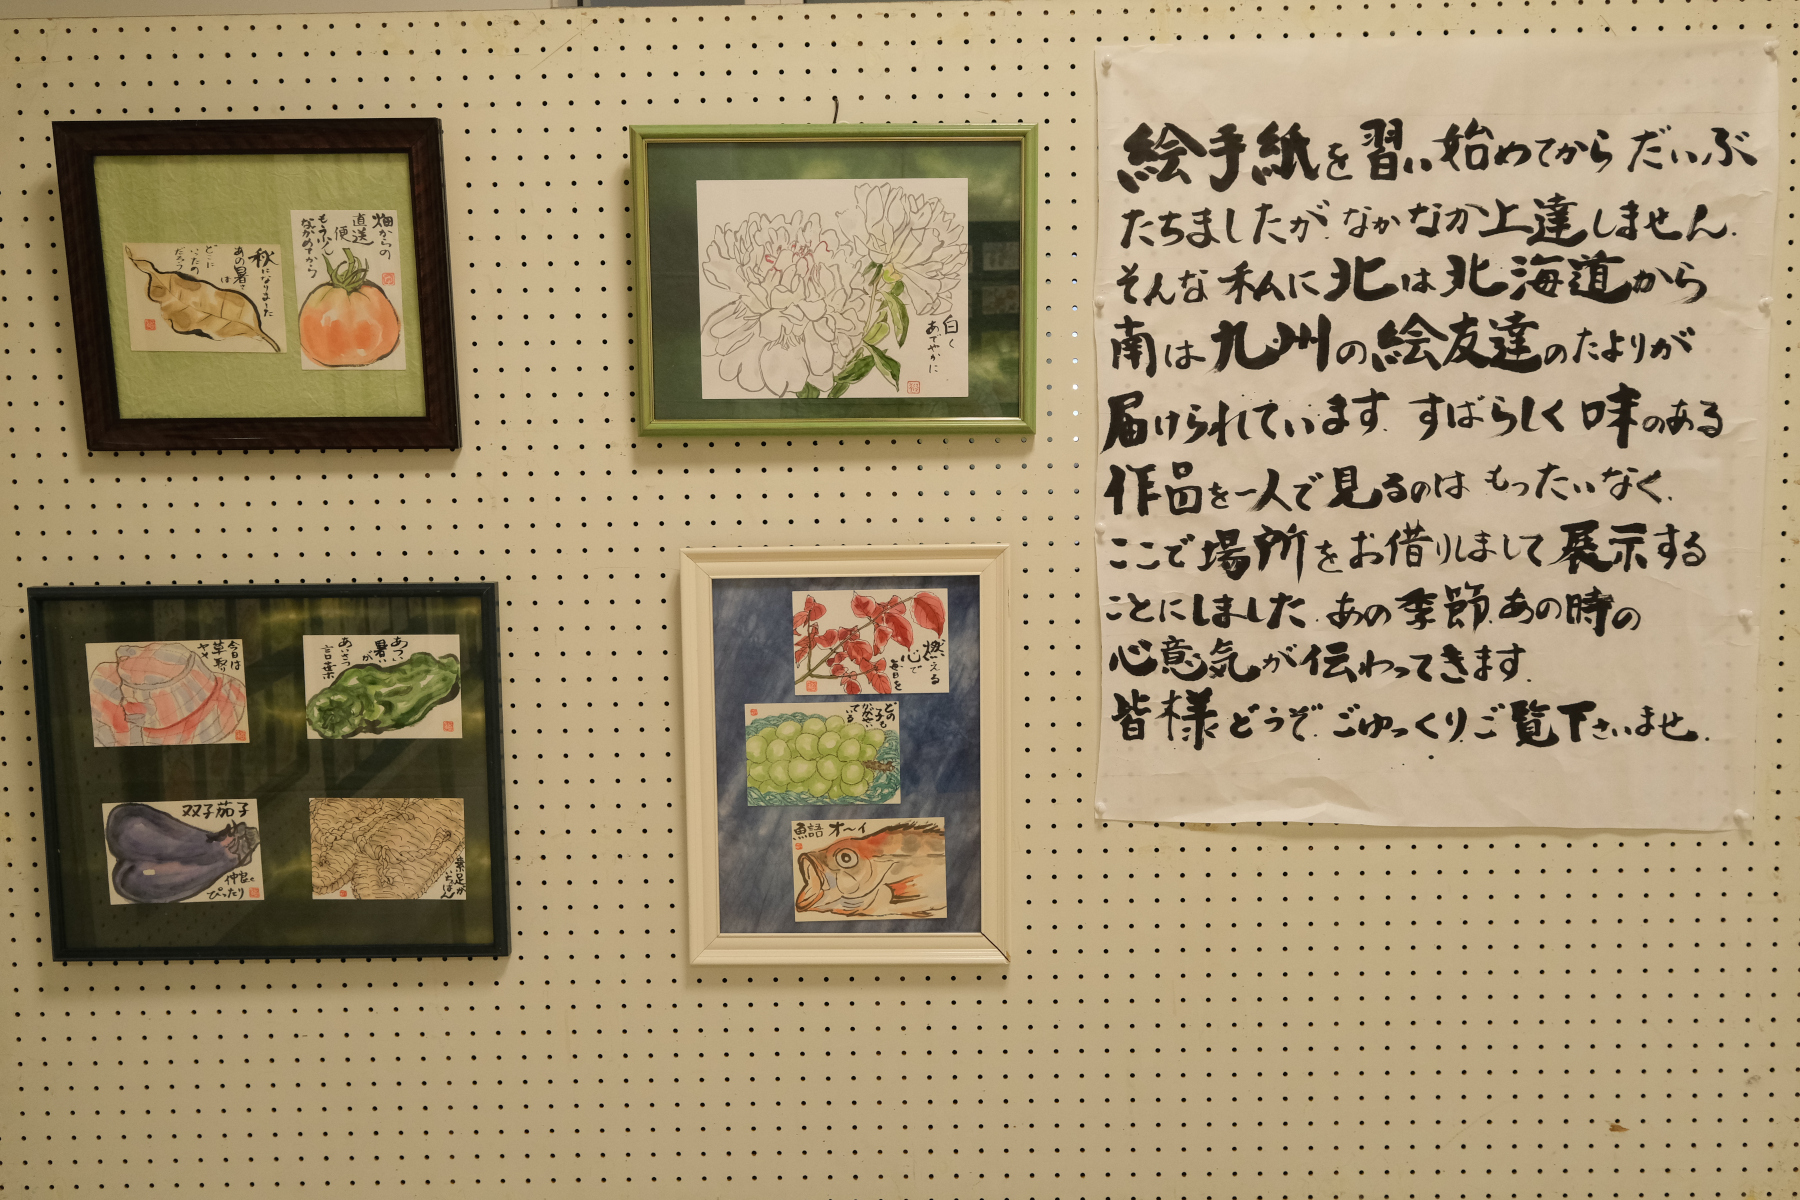 秋になりました
あの暑さは
どこに
いったの
だろう
畑からの
直送
便
もう少し
ながめてから
白く
あでやかに
今日は
草取り
ヤメ
あつい
暑いが
あいさつ
言葉
双子茄子
仲良く
ぴったり
素足が
いちばん
燃える
心で
毎日を
どの
子も
かがやい
ている
魚語 オ〜イ
絵手紙を習い始めてからだいぶ
たちましたが、なかなか上達しません。
そんな私に北は北海道から
南は九州の絵友達のたよりが
届けられています。すばらしく味のある
作品を一人で見るのはもったいなく、
ここで場所をお借りしまして展示する
ことにしました。あの季節、あの時の
心意気が伝わってきます。
皆様どうぞ、ごゆっくりご覧下さいませ。